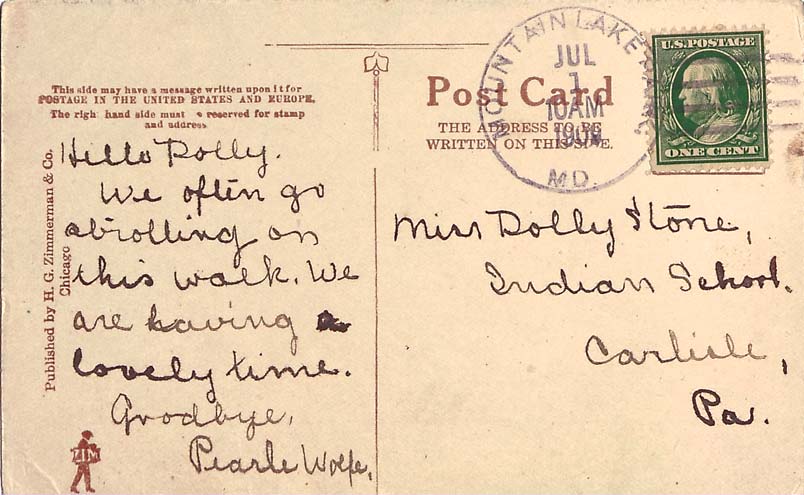 This side may have a message written upon it for
POSTAGE IN THE UNITED STATES AND EUROPE.
The righ hand side must reserved for stamp
and address
Post Card
THE ADDRESS TO BE
WRITTEN ON THIS SIDE.
MOUNTAIN LAKE
JUL
1
10AM
1909
MD.
U.S. POSTAGE
ONE CENT
Hello Dolly.
We often go
strolling on
this walk. We
are having a
lovely time.
Goodbye,
Pearle Wolfe,
Miss Dolly Stone,
Indian School.
Carlisle,
Pa.
Published by H. G. Zimmerman & Co.
Chicago
ZIM